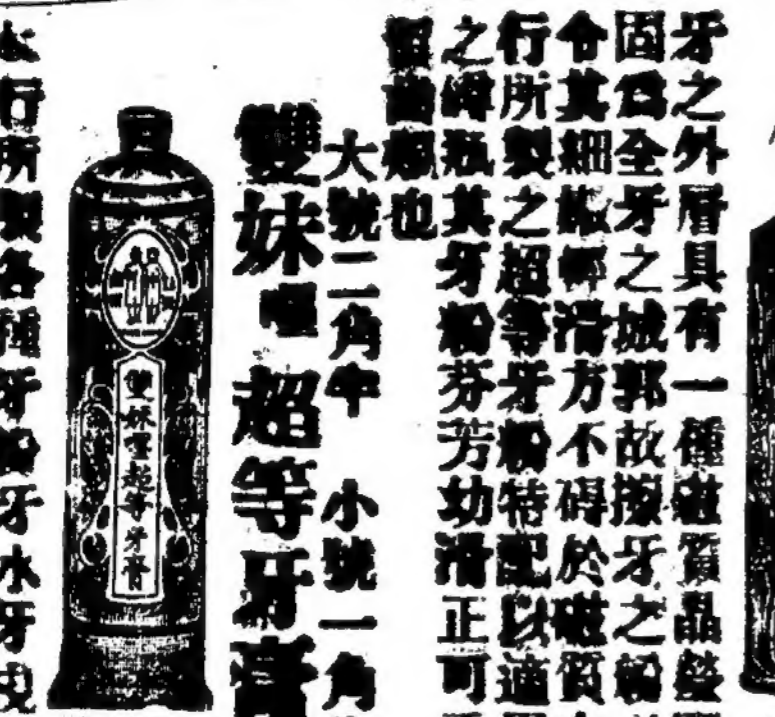 牙之外層具有一種磁質晶瑩
固爲全牙之城郭故擦牙之粉
令其細緻輕滑方不碍於磁質
行所製之超等牙粉特配以適
之罇瓶其牙粉芬芳幼滑正可
也
大號二角半 小號一角
雙妹嚜超等牙膏
雙妹嚜超等牙膏
本行所製各種牙粉牙水牙